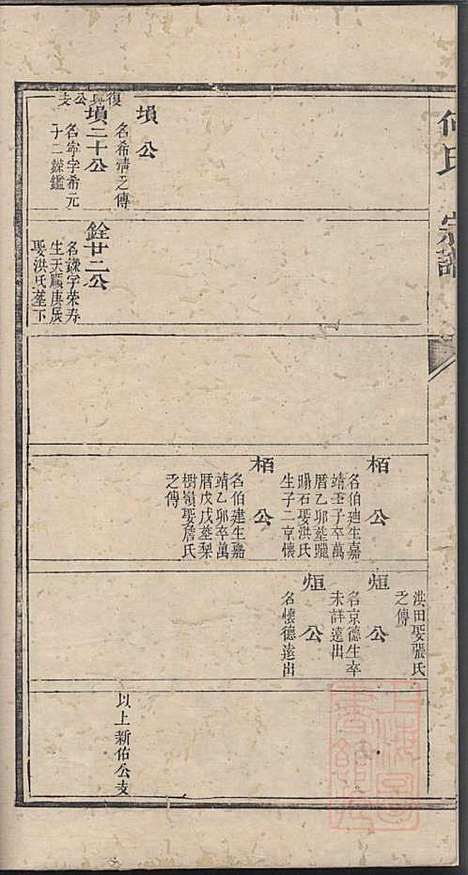 何氏宗譜
塤公
名希清之傳
復興公支
塤二十公
名寧字希元
子二鑅鑑
銓廿二公
名鑅字榮寿
生天順庚辰
娶洪氏墓下
栢公
名伯廸生嘉
靖壬子卒萬
曆乙卯墓
石娶洪氏
生子二京懷
栢公
名伯建生嘉
靖乙卯卒萬
曆戊戌墓梨
樹嶺娶詹氏
之傳
洪田娶張氏
之傳
烜公
名京德生卒
未詳遠出
烜公
名懷德遠出
以上新佑公支